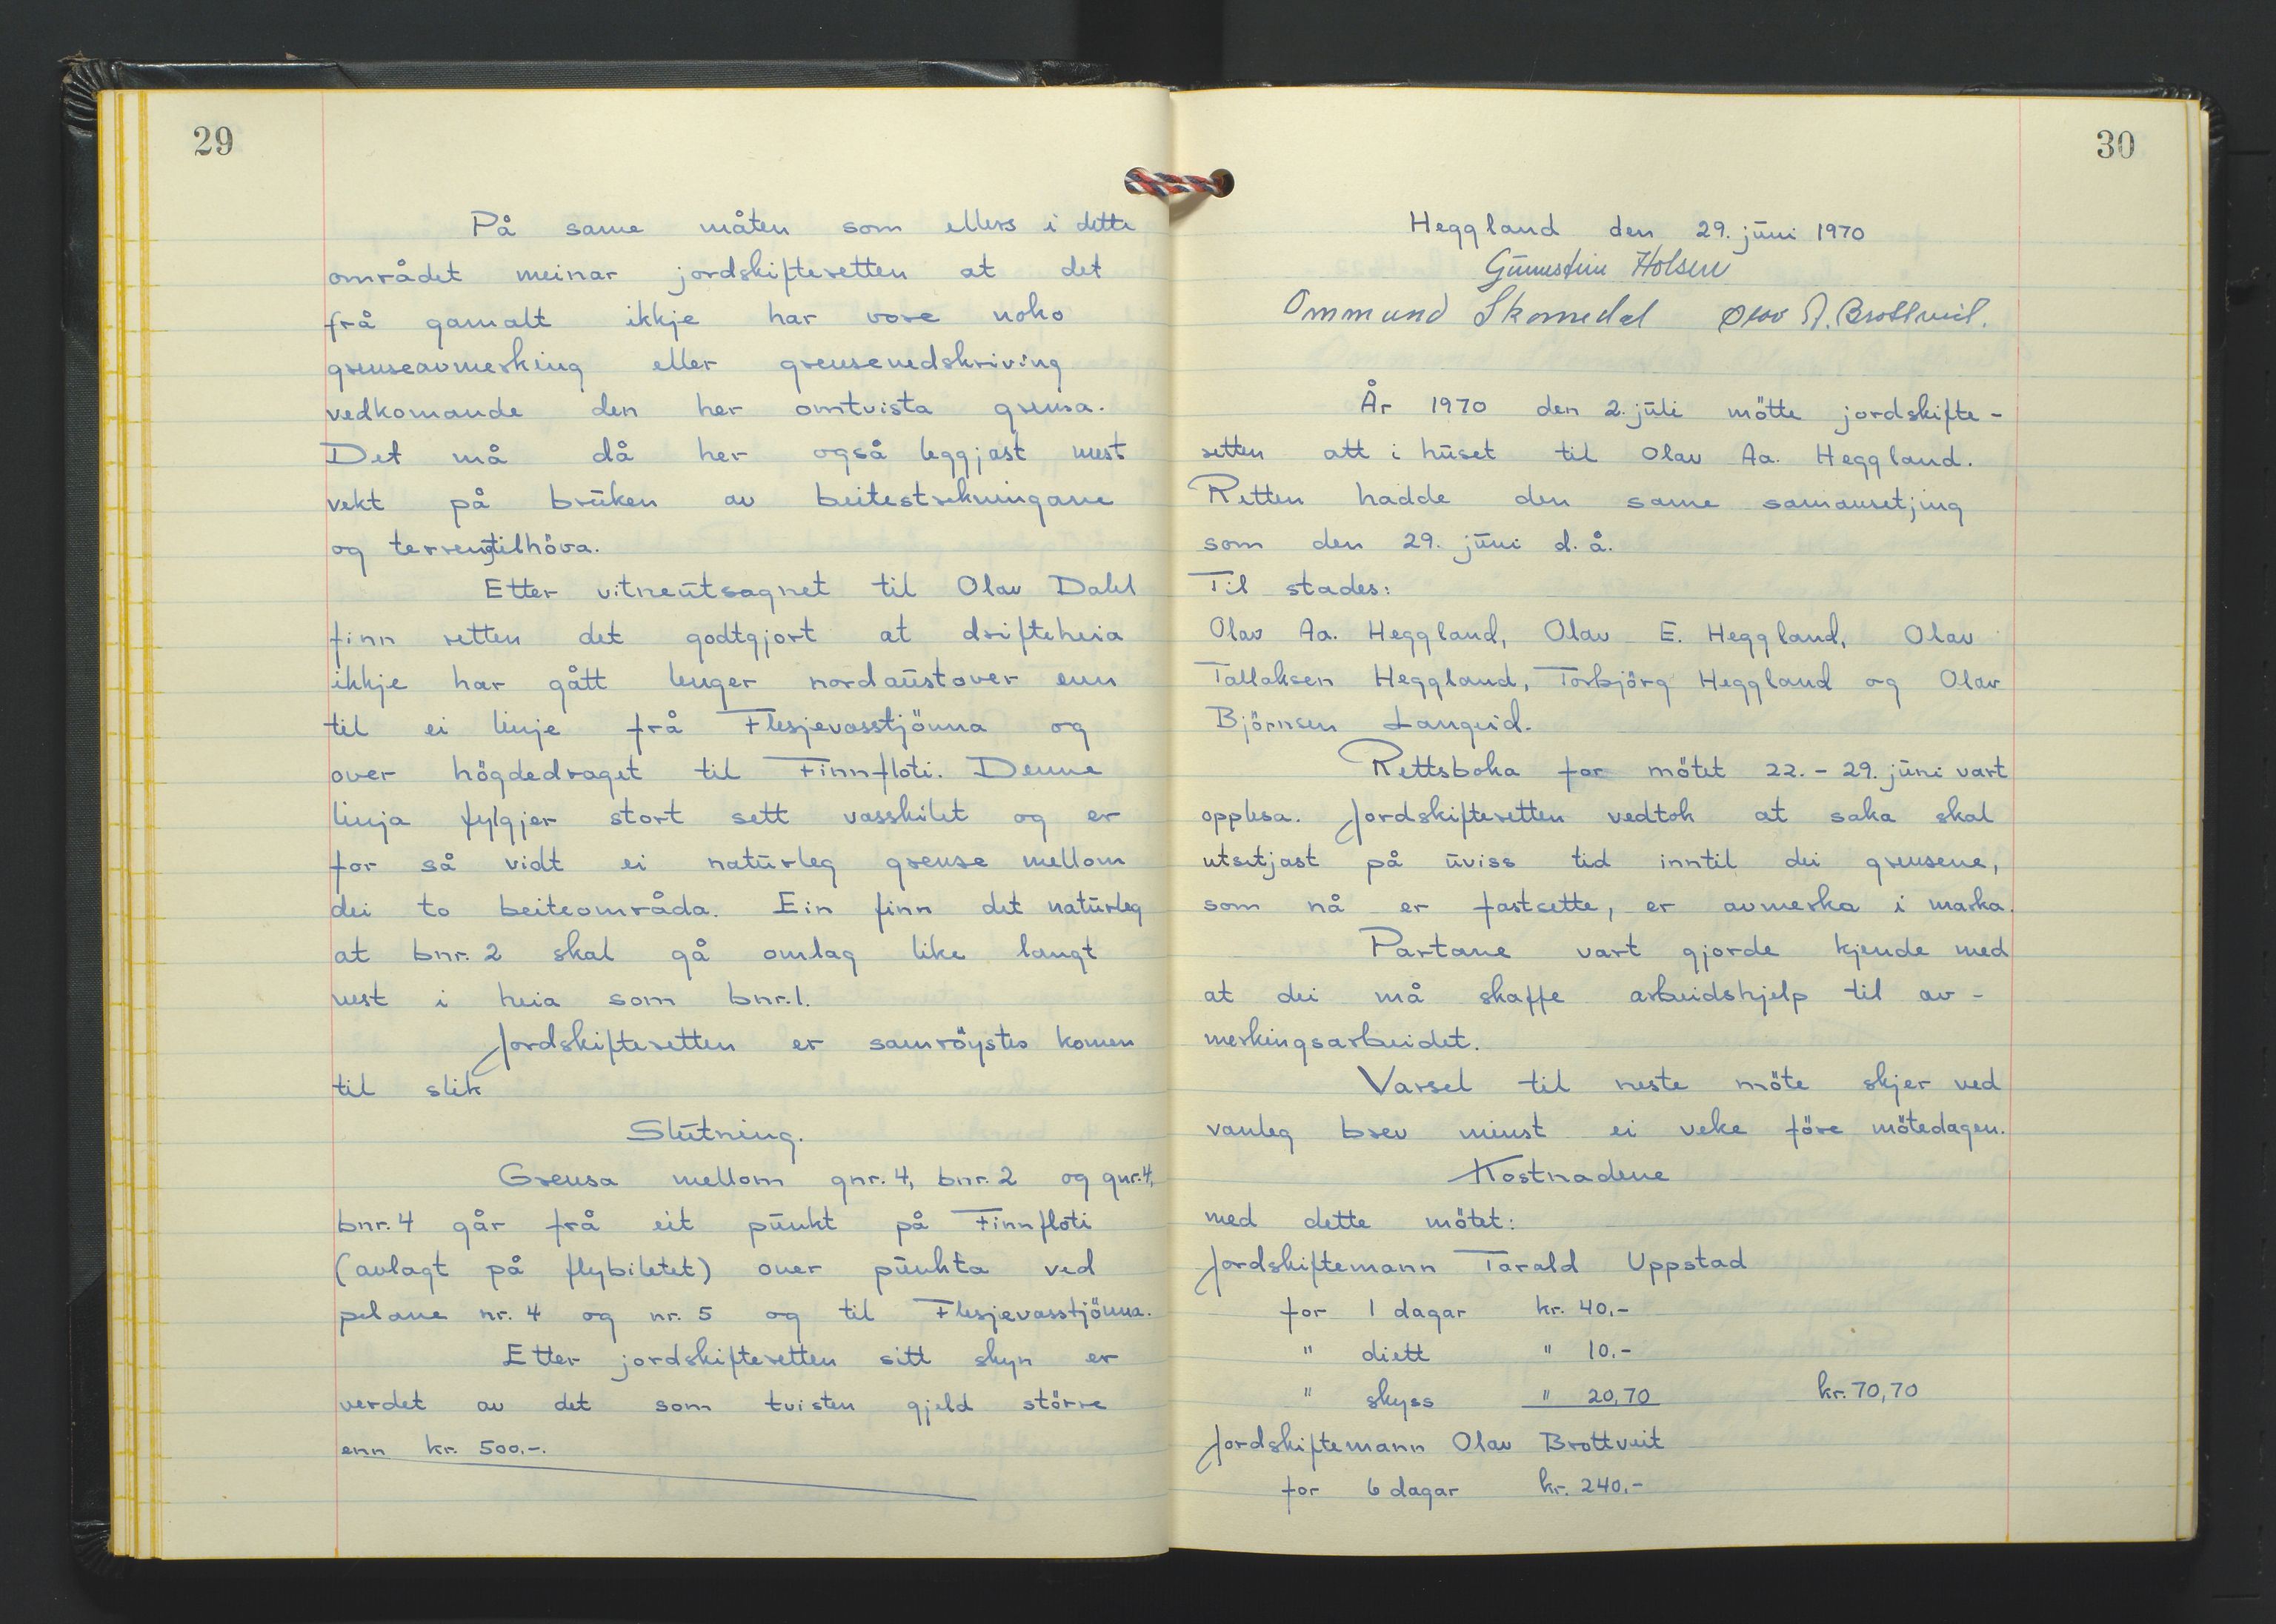 29
På same måten som ellers i dette
området meinar jordskifteretten at det
frå gamalt ikkje har vore noko
grenseavmerking eller grensenedskriving
vedkomande den her omtvista grensa.
Det må då her også leggjast mest
vekt på bruken av beitestrekningane
og terrengtilhöva.
Etter vitneutsagnet til Olav Dahl
finn retten det godtgjort at drifteheia
ikkje har gått lenger nordaustover enn
til ei linje frå Flesjevasstjönna og
over högdedraget til Finnfloti. Denne
linja fylgjer stort sett vasskilet og er
for så vidt ei naturleg grense mellom
dei to beiteområda. Ein finn det naturleg
at bnr. 2 skal gå omlag like langt
vest i heia som bnr. 1.
Jordskifteretten er samröystes komen
til slik
Slutning.
Grensa mellom gnr. 4, bnr. 2 og gnr. 4,
bnr. 4 går frå eit punkt på Finnfloti
(avlagt på flybiletet) over punkta ved
pelane nr. 4 og nr. 5 og til Flesjevasstjönna.
Etter jordskifteretten sitt skyn er
verdet av det som tvisten gjeld större
enn kr. 500,-.
30
Heggland den 29. juni 1970
Gunnstein Holsen
Ommund Skomedal Olav A. Brottveit.
År 1970 den 2. juli mötte jordskifte-
retten att i huset til Olav Aa. Heggland.
Retten hadde den same samansetjing
som den 29. juni d.å.
Til stades:
Olav Aa. Heggland, Olav E. Heggland, Olav
Tallaksen Heggland, Torbjörg Heggland og Olav
Björnsen Langeid.
Rettsboka for mötet 22. - 29. juni vart
opplesa. Jordskifteretten vedtok at saka skal
utsetjast på uviss tid inntil dei grensene,
som nå er fastsette, er avmerka i marka.
Partane vart gjorde kjende med
at dei må skaffe arbeidshjelp til av-
merkingsarbeidet.
Varsel til neste möte skjer ved
vanleg brev minst ei veke före mötedagen.
Kostnadene
med dette mötet:
Jordskiftemann Tarald Uppstad
for 1 dagar kr. 40,-
" diett " 10,-
" skyss " 20,70 kr. 70,70
Jordskiftemann Olav Brottveit
for 6 dagar kr. 240,-